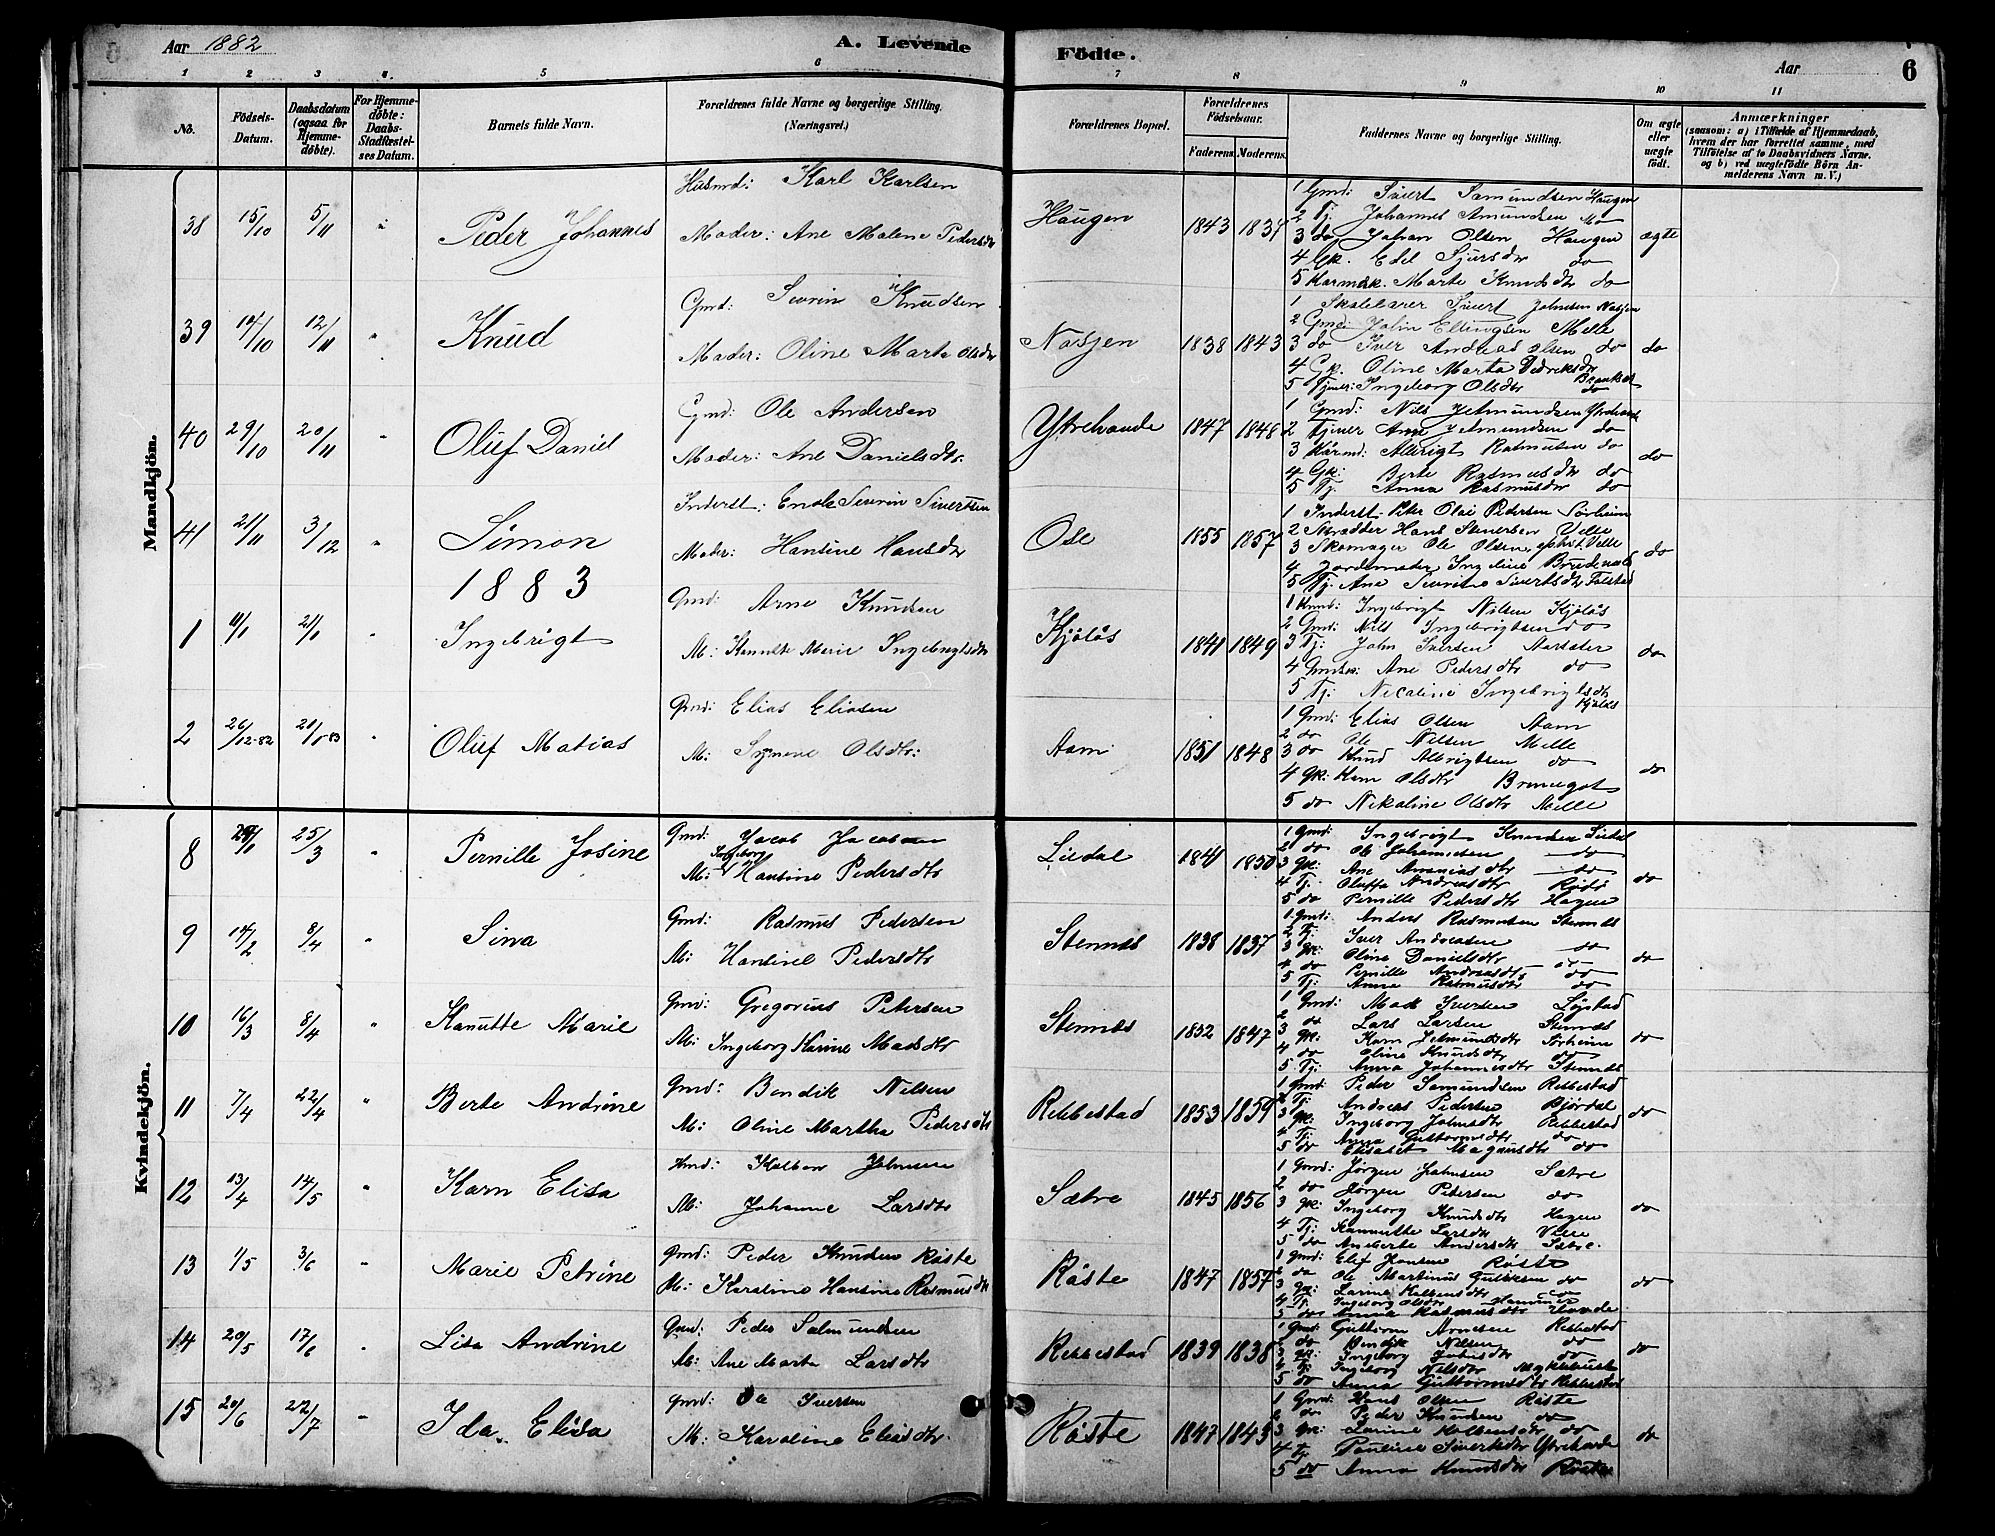 Aar 1882
A. Levende Födte.
Aar
6
1 2 3 4 5 6 7 8 9 10 11
No.
Födsels-Datum.
Daabsdatum (ogsaa for Hjemme-döbte).
For Hjemme-döbte: Daabs-Stadfæstel-ses Datum.
Barnets fulde Navn.
Forældrenes fulde Navne og borgerlige Stilling. (Næringsvei.)
Forældrenes Bopæl.
Forældrenes Födselsaar.
Faderens. Moderens.
Faddernes Navne og borgerlige Stilling.
Om ægte eller uægte födt.
Anmærkninger
(saasom: a) i Tilfælde af Hjemmedaab, hvem der har forrettet samme, med Tilföielse af to Daabsvidners Navne. og b) ved uægtefödte Börn An-melderens Navn m. V.)
Mandkjön.
38 15/10 5/11 " Peder Johannes
Husmd: Karl Karlsen
Moder: Ane Malene Pedersdtr
Haugen 1843 1837
1 Gmd: Sivert Samundsen Haugen
2 Tj. Johannes Amundsen Mo
3 do Johan Olsen Haugen
4 Gk. Edel Sjursdtr do
5 Kaarmdsk. Marte Knudsdtr do
ægte
39 14/10 12/11 " Knud
Gmd: Sevrin Knudsen
Moder: Oline Marta Olsdtr
Nosjen 1838 1843
1 Skolelærer Sivert Johnsen Nosjen
2 Gmd: John Ellingsen Melle
3 do Iver Andreas Olsen do
4 Gk. Oline Marta Pedersdtr
5 Tjener: Ingeborg Olsdtr do
do
40 29/10 20/11 " Oluf Daniel
Gmd: Ole Andersen
Moder: Ane Danielsdtr.
Ytrehovde 1847 1848
1 Gmd: Nils Jetmundsen Ytrehovde
2 Tjener Arne Jetmundsen do
3 Kårmd: Albrigt Rasmusen do
4 Gk: Berte Rasmusdtr do
5 Tj. Anna Rasmusdtr do
do
41 21/11 3/12 " Simon
Inderst: Enok Sevrin Sivertsen
Moder: Hansine Hansdtr
Ose 1855 1857
1 Inderst Peter Olai Pedersen Sørheim
2 Skrædder Hans Stenersen Velle
3 Skomager Ole Olsen Velle
4 Jordemoder Ingeline
5 Tj. Ane Sevrine Sivertsdtr
do
1883
1 21/1 " Ingebrigt
Gmd: Arne Knudsen
M: Kanutte Marie Ingebrigtsdtr
Kjølås 1841 1849
1 Kmd: Ingebrigt Nilsen Kjølås
2 Gmd: Nils Ingebrigtsen do
3 Tj: John Iversen Aarsæter
4 Ane Pedersdtr do
5 Tj: Nicoline Ingebrigtsdtr Kjølås
do
2 26/12-82 20/1 83 " Oluf Matias
Gmd: Elias Eliasen
M: Synneve Olsdtr:
Aam 1851 1848
1 Gmd: Elias Olsen Aam
2 do Ole Nilsen Melle
3 do Knud Albrigtsen do
4 Gk: Karn Olsdtr
5 do Nikoline Olsdtr Melle
do
Kvindekjön.
8 25/3 " Pernille Josine
Gmd: Jacob Jacobsen
M: Ingeborg Hansine Pedersdtr
Liedal 1841 1850
1 Gmd: Ingebrigt Knudsen Liedal
2 do Ole Johannesen do
3 Gk: Ane Ananiasdtr do
4 Tj. Oluffa Andreasdtr
5 do Pernille Pedersdtr Hagen
do
9 14/2 8/4 " Sina
Gmd: Rasmus Pedersen
M: Hansine Pedersdtr
Stennes 1838 1837
1 Gmd: Anders Rasmusen Stennes
2 Tj. Iver Andreasen do
3 Gk: Oline Danielsdtr
4 do Pernille Andreasdtr do
5 Tj: Anna Rasmusdtr do
do
10 16/3 8/4 " Kanutte Marie
Gmd: Gregorius Petersen
M: Ingeborg Karine Madsdtr
Stennes 1852 1847
1 Gmd: Mads Iversen
2 do Lars Larsen Stennes
3 Gk: Karn Jetmundsdtr Sørheim
4 do Oline Knudsdtr do
5 Tj: Anna Johannesdtr Stennes
do
11 7/4 22/4 " Berte Andrine
Gmd: Bendik Nilsen
M: Oline Martha Pedersdtr
Rebbestad 1853 1859
1 Gmd: Peder Samundsen Rebbestad
2 Tj: Andreas Pedersen Bjørdal
3 Gk: Ingeborg Johnsdtr Rebbestad
4 Tj: Anna Guttormsdtr do
5 do Elisabet Magnusdtr do
do
12 13/4 14/5 " Karn Elisa
Hmd: Kolben Johnsen
M: Johanne Larsdtr
Sætre 1845 1856
1 Gmd: Jørgen Johnsen Sætre
2 do Jørgen Petersen do
3 Gk: Ingeborg Knudsdtr Hagen
4 Tj: Kannutte Larsdtr Velle
5 do Aneberte Andersdtr Sætre.
do
13 1/5 3/6 " Marie Petrine
Gmd: Peder Knudsen Røste
M: Karoline Hansine Rasmusdtr
Røste 1847 1857
1 Gmd: Elif Hansen Røste
2 do Ole Martinus do
3 Gk: Larine Kolbensdtr do
4 Tj: Ingeborg Olsdtr
5 do Anna Rasmusdtr Hovde
do
14 20/5 17/6 " Lisa Andrine
Gmd: Peder Salmundsen
M: Ane Marta Larsdtr
Rebbestad 1839 1838
1 Gmd: Guttorm Arnesen Rebbestad
2 do Bendik Nilsen do
3 Gk: Ingeborg Johnsdtr do
4 Tj: Ingeborg Nilsdtr Myklebust
5 do Anna Guttormsdtr Rebbestad
do
15 20/6 22/7 " Ida Elisa
Gmd: Ole Iversen
M: Karoline Eliasdtr.
Røste 1847 1843
1 Gmd: Hans Olsen Røste
2 do Peder Knudsen do
3 Gk: Larine Kolbensdtr do
4 Tj: Pauline Sivertsdtr Ytrehovde
5 do Anna Knudsdtr Røste
do